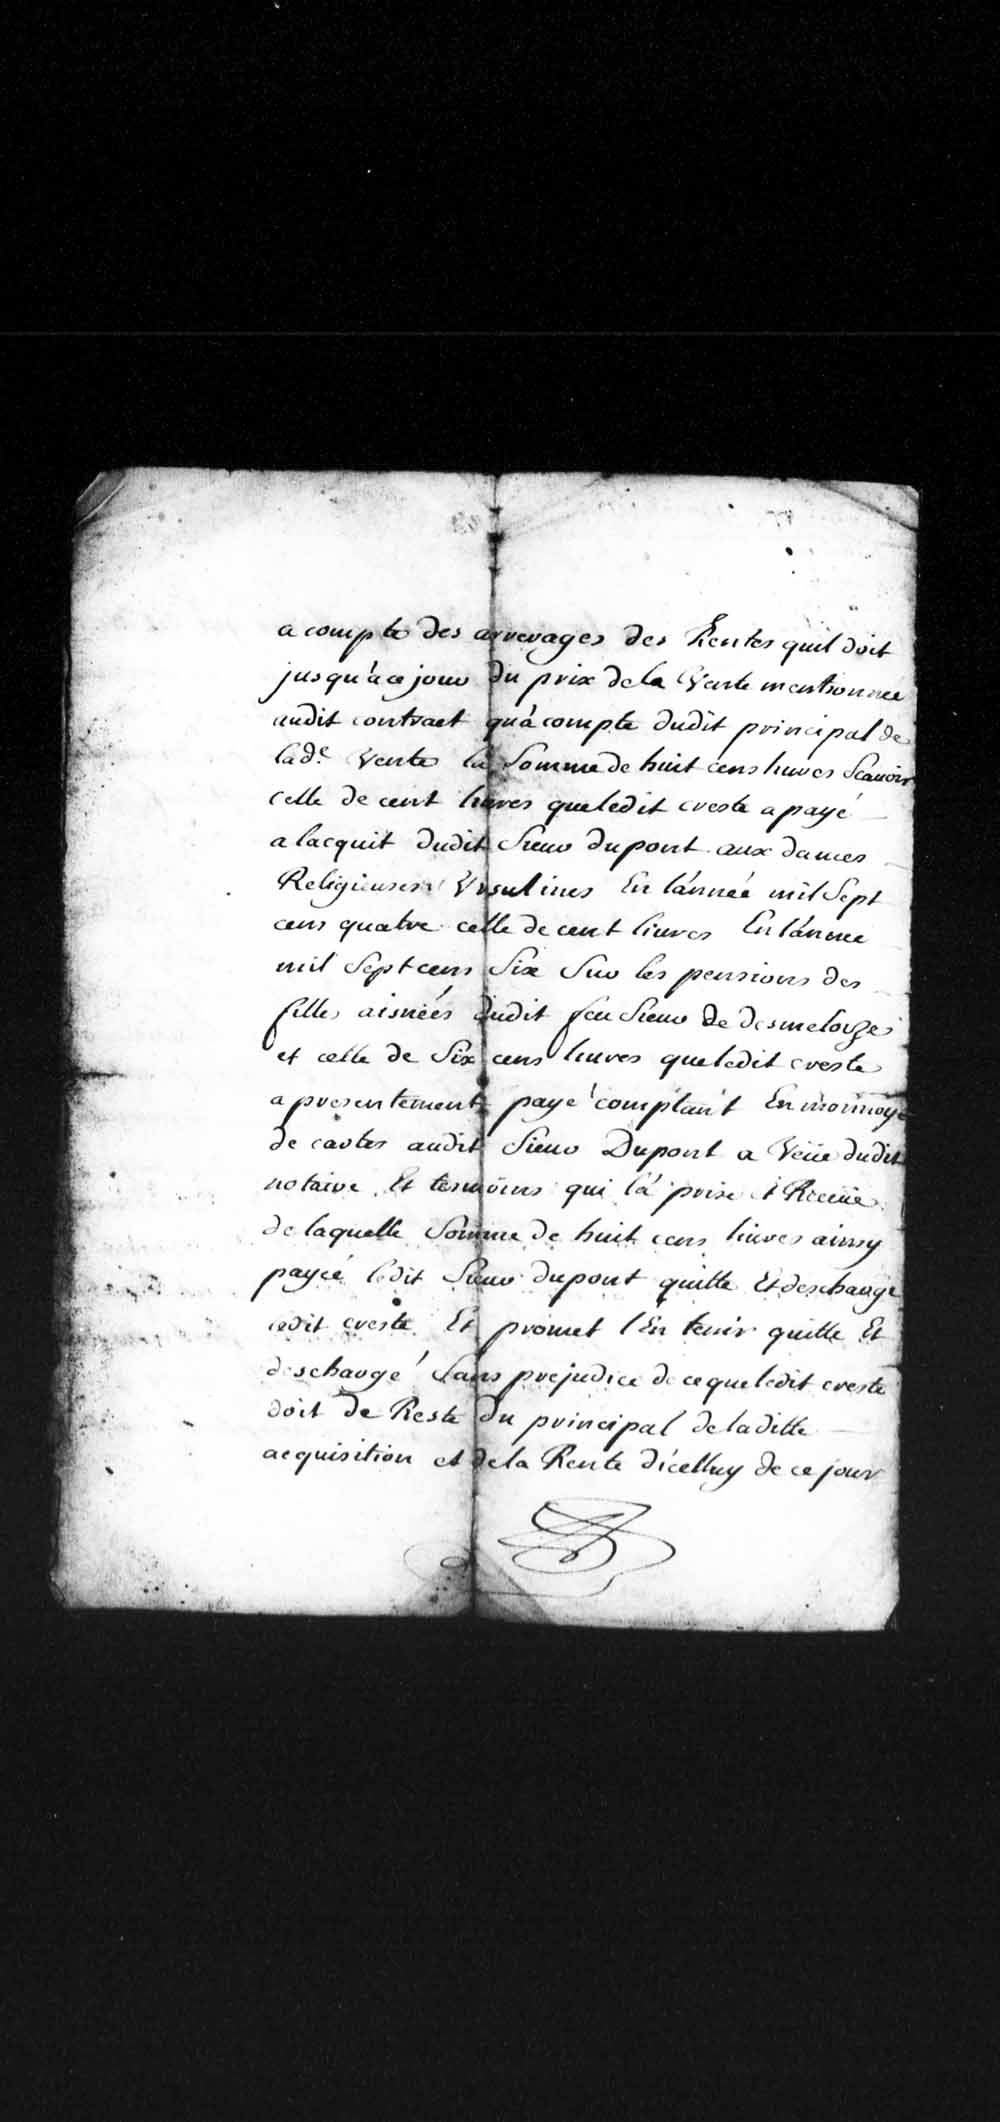 a compte des arrerages des Rentes quil doit
jusqu'à ce jour du prix de la Vente mentionnee
audit contract qu'a compte dudit principal de
lad.e Vente la Somme de huit cens livres Scauoir
celle de cent livres que ledit creste a payé
a lacquit dudit Sieur dupont aux dames
Religieuses Vrsulines En l'année mil Sept
cens quatre celle de cent liures En l'année
mil Sept cens Six Sur les pensions des
filles aisnées dudit feu Sieur de desmeloizes
et celle de Six cens liures que ledit creste
a presentement payé comptant En monnoye
de cartes audit Sieur Dupont a Veüe dudit
notaire Et tesmoins qui l'a prise & Receüe
de laquelle Somme de huit cens liures ainsy
payeé ledit Sieur dupont quitte Et descharge
ledit creste Et promet l'En tenir quitte Et
deschargé Sans prejudice de ce que ledit creste
doit de Reste du principal de laditte
acquisition et de la Rente d'icelluy de ce jour